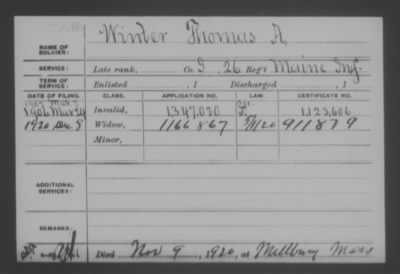 NAME OF SOLDIER: Winter Thomas A.
SERVICE: Late rank, Co. I. 26 Reg't Maine Inf.
TERM OF SERVICE: Enlisted , 1 Discharged , 1
DATE OF FILING. CLASS. APPLICATION NO. LAW. CERTIFICATE NO.
1907 Mar. 7
1906 Mar 24 Invalid, 1347,020 1123,606
1920 Dec 9 Widow, 1166867 911879
Minor,
ADDITIONAL SERVICES:
REMARKS:
Died Nov 9, 1920, at Millbury Mass